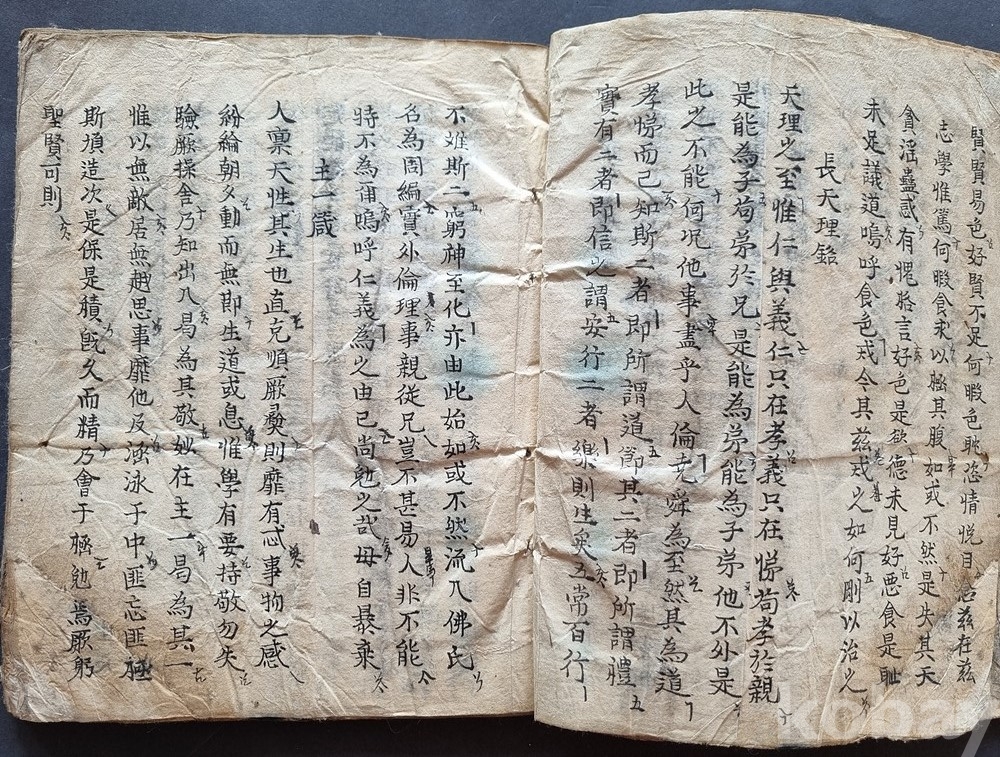 賢賢易色好賢不足何暇色眈恣情悅目念茲在茲
志學惟篤何暇食求以極其腹如或不然是失其天
貪淫蠱惑有愧格言好色是欲德未見好惡食是耻
未足議道嗚呼食色戒令其茲戒之如何剛以治之
長天理銘
天理之至惟仁與義仁只在孝義只在悌苟孝於親
是能為子苟弟於兄是能為弟能為子弟他不外是
此之不能何況他事盡乎人倫堯舜為至然其為道
孝悌而已知斯二者即所謂道節其二者即所謂禮
實有二者即信之謂安行二者樂則生矣五常百行
不難斯二窮神至化亦由此始如或不然流入佛氏
名為周編實外倫理事親從兄豈不甚易人非不能
特不為甭嗚呼仁義為之由已尚勉之哉毋自暴棄
主一箴
人禀天性其生也直克順厥彛則靡有忒事物之感
紛綸朝夕動而無即生道或息惟學有要持敬勿失
驗厥操舍乃知出入曷為其敬妙在主一曷為其一
惟以無敵居無越思事靡他及涵泳于中匪忘匪極
斯湏造次是保是積旣久而精乃會于極勉焉厥躬
聖賢可則
kobay